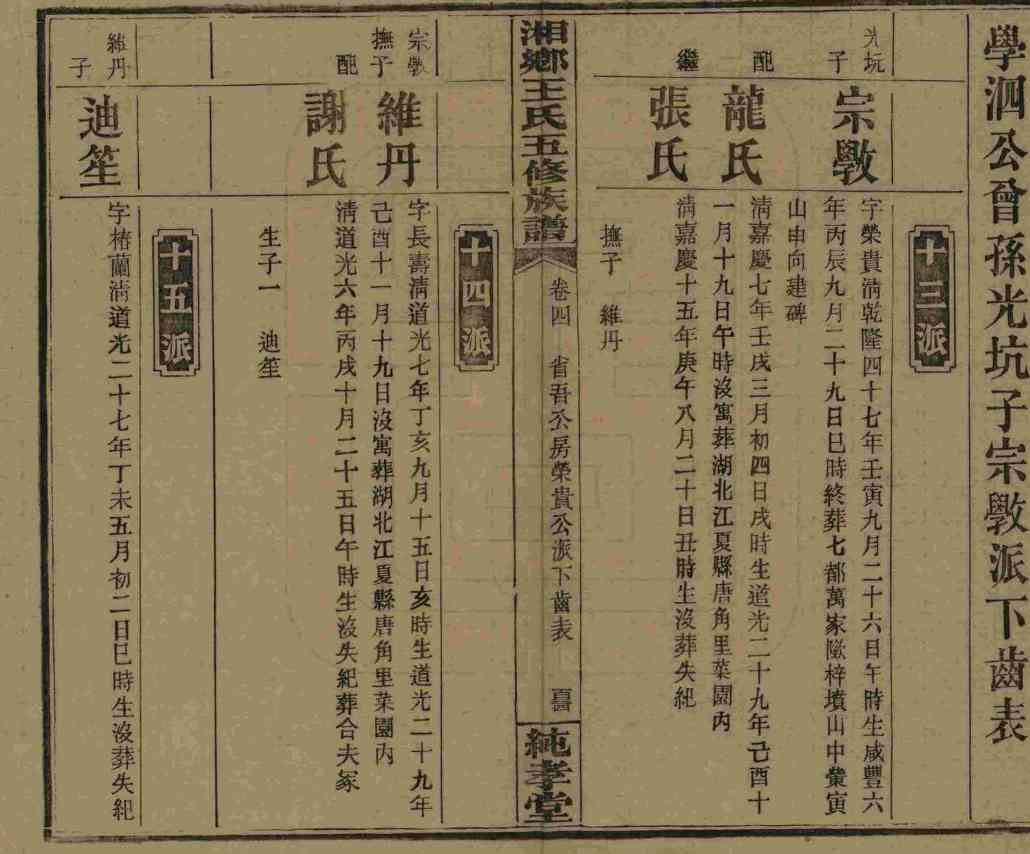 學泗公曾孫光坑子宗斆派下齒表
十三派
光坑
子
宗斆
字榮貴清乾隆四十七年壬寅九月二十六日午時生咸豐六
年丙辰九月二十九日巳時終葬七都萬家墩梓墳山中塋寅
山申向建碑
配
龍氏
清嘉慶七年壬戌三月初四日戌時生道光二十九年己酉十
一月十九日午時沒寓葬湖北江夏縣唐角里菜園內
繼
張氏
清嘉慶十五年庚午八月二十日丑時生沒葬失紀
撫子 維丹
湘鄉王氏五修族譜
卷四
省吾公房榮貴公派下齒表
純孝堂
十四派
宗斆
撫子
維丹
字長壽清道光七年丁亥九月十五日亥時生道光二十九年
己酉十一月十九日沒寓葬湖北江夏縣唐角里菜園內
配
謝氏
清道光六年丙戌十月二十五日午時生沒失紀葬合夫冢
生子一 迪笙
十五派
維丹
子
迪笙
字椿蘭清道光二十七年丁未五月初二日巳時生沒葬失紀